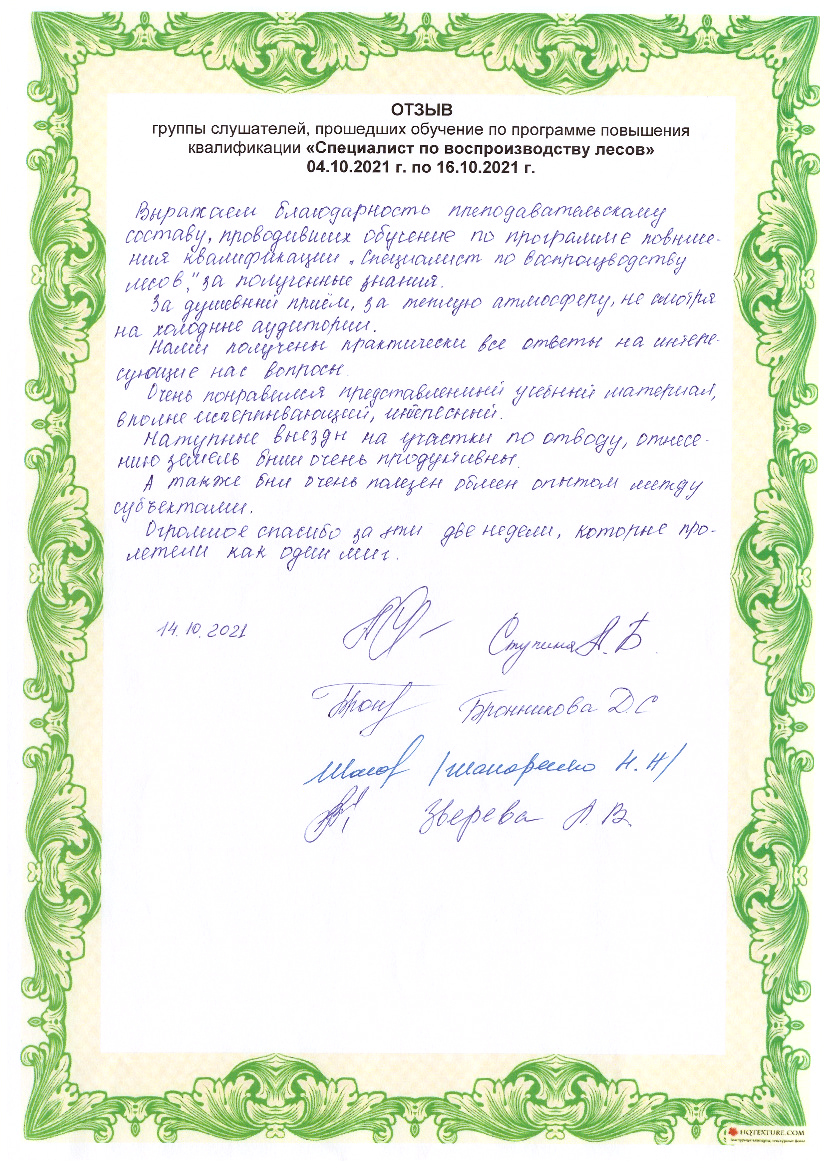 ОТЗЫВ
группы слушателей, прошедших обучение по программе повышения
квалификации «Специалист по воспроизводству лесов»
04.10.2021 г. по 16.10.2021 г.
Выражаем благодарность преподавательскому
составу, проводивших обучение по программе повыше-
ния квалификации „Специалист по воспроизводству
лесов," за полученные знания.
За душевный приём, за теплую атмосферу, не смотря
на холодные аудитории.
Нами получены практически все ответы на интере-
сующие нас вопросы.
Очень понравился представленный учебный материал,
вполне исчерпывающий, интересный.
Наступные выезды на участки по отводу, отнесе-
нию земель были очень продуктивны.
А также был очень полезен обмен опытом между
субъектами.
Огромное спасибо за эти две недели, которые про-
летели как один миг.
14.10.2021
Ступина А.Б.
Бронникова Д.С
/Шапоренко Н.Н/
Зверева А.В.
HQTEXTURE.COM